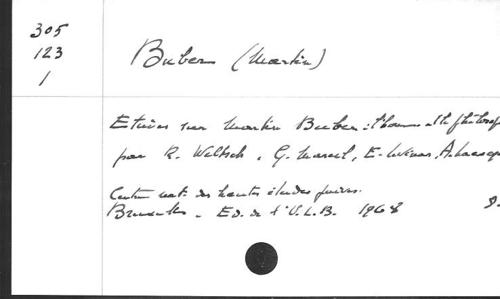 305
123
1
Buber (Martin)
Etudes sur Martin Buber : l'homme et le philosop
par R. Weltsch, G. Marcel, E. Levinas, A.
Centre nat. des hautes études juives.
Bruxelles. Ed. de l'U.L.B. 1968